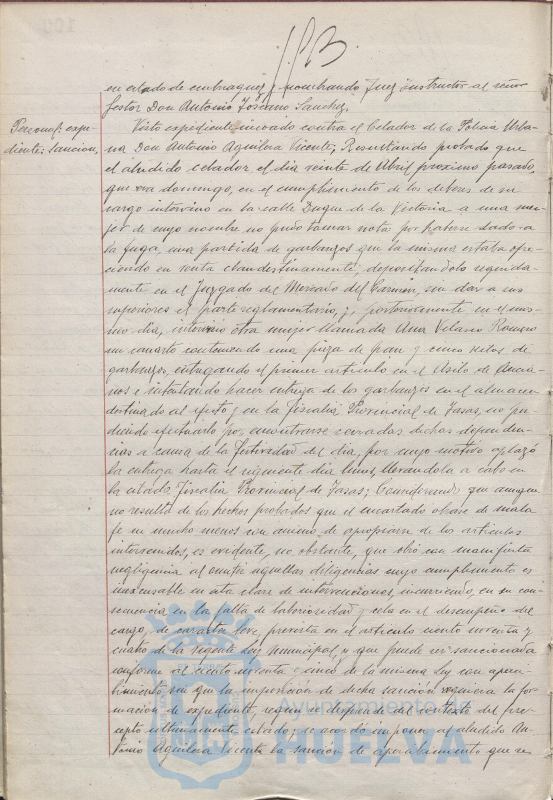 en estado de embriaguez y nombrando Juez instructor al señor
Gestor Don Antonio Toscano Sanchez.
Personal: expe-
diente: sancion,
Visto expediente incoado contra el Celador de la Policia Urba-
na Don Antonio Aguilera Vicente; Resultando probado que
el aludido celador el dia veinte de Abril proximo pasado,
que era domingo, en el cumplimiento de los deberes de su
cargo intervino en la calle Duque de la Victoria a una mu-
jer de cuyo nombre no pudo tomar nota por haberse dado a
la fuga, una partida de garbanzos que la misma estaba ofre-
ciendo en venta clandestinamente, depositandola seguida-
mente en el Juzgado del Mercado del Carmen, sin dar a sus
superiores el parte reglamentario, y, posteriormente en el mis-
mo dia, intervino otra mujer llamada Ana Velasco Romero
un canasto conteniendo una pieza de pan y cinco kilos de
garbanzos, entregando el primer articulo en el Asilo de Ancia-
nos e intentando hacer entrega de los garbanzos en el almacen
destinado al efecto y en la Fiscalia Provincial de Tasas, no pu-
diendo efectuarlo por encontrarse cerradas dichas dependen-
cias a causa de la festividad del dia, por cuyo motivo aplazó
la entrega hasta el siguiente dia lunes, llevandola a cabo en
la citada Fiscalia Provincial de Tasas; Considerando que aunque
no resulta de los hechos probados que el encartado obrase de mala
fe ni mucho menos con animo de apropiarse de los articulos
intervenidos, es evidente, no obstante, que obró con manifiesta
negligencia al omitir aquellas diligencias cuyo cumplimiento es
inexcusable en esta clase de intervenciones, incurriendo, en su con-
secuencia en la falta de laboriosidad y celo en el desempeño del
cargo, de caracter leve, prevista en el articulo ciento noventa y
cuatro de la vigente Ley Municipal y que puede ser sancionada
conforme al ciento noventa y cinco de la misma Ley con aperci-
bimiento, sin que la imposición de dicha sanción requiera la for-
macion de expediente, segun se desprende del contexto del pre-
cepto ultimamente citado; se acordó imponer al aludido An-
tonio Aguilera Vicente la sanción de apercibimiento que se
Ayuntamiento de
HUELVA